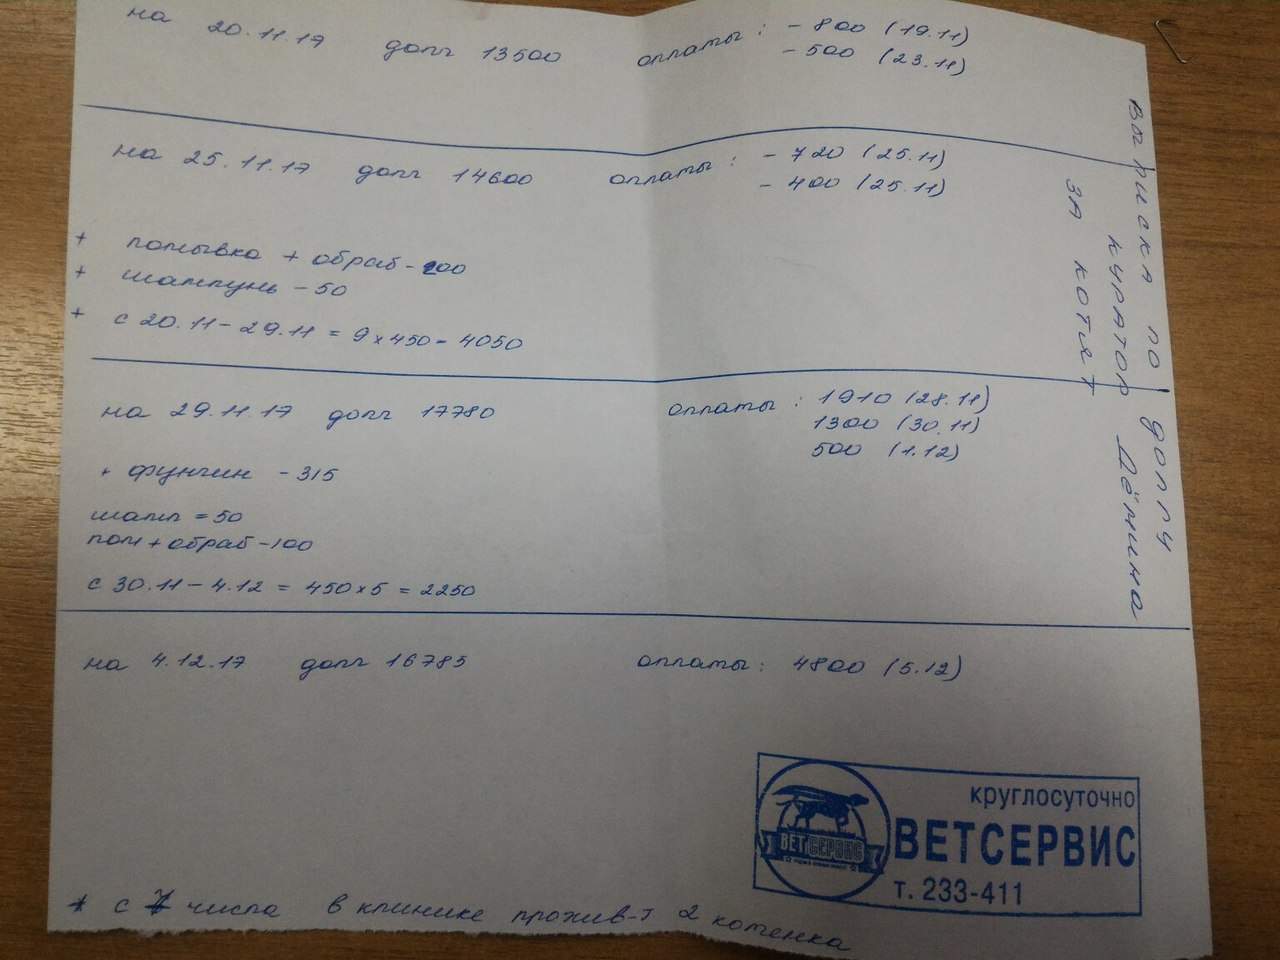 на 20.11.17 долг 13500 оплаты: - 800 (19.11)
- 500 (23.11)
на 25.11.17 долг 14600 оплаты: - 720 (25.11)
- 400 (25.11)
+ помывка + обраб - 200
+ шампунь - 50
+ с 20.11 - 29.11 = 9 x 450 = 4050
на 29.11.17 долг 17780 оплаты: 1910 (28.11)
1300 (30.11)
500 (1.12)
+ фунгин - 315
шамп = 50
пом + обраб - 100
с 30.11 - 4.12 = 450 x 5 = 2250
на 4.12.17 долг 16785 оплаты: 4800 (5.12)
* с 7 числа в клинике прожив-т 2 котенка
Выписка по долгу
куратор Дёмина
за котят
круглосуточно
ВЕТСЕРВИС
т. 233-411
ВЕТСЕРВИС